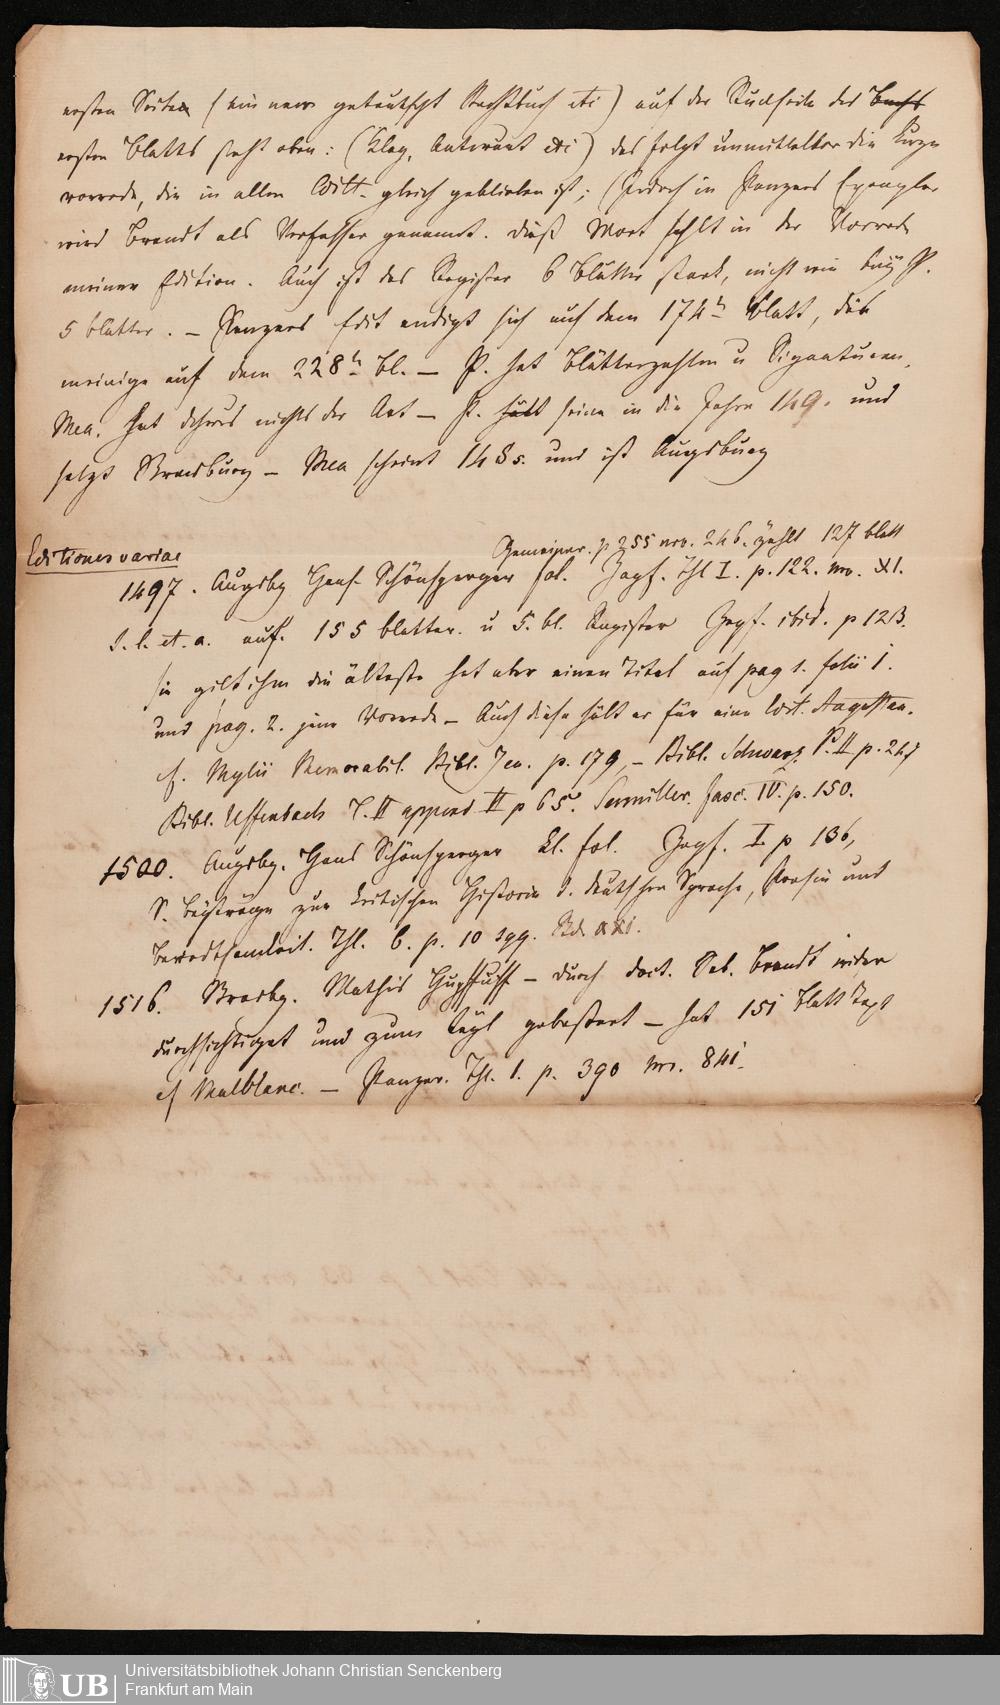 ersten Seite (hin new geteutscht Rechtbuch etc) auf der Rückseite des Buchs
ersten Blatts steht oben: (Clag, Antwurt etc) das folgt unmittelbar die kurze
vorrede, die in allen Editt. gleich geblieben ist; (Jedoch in Panzers Exemplar
wird Brandt als Verfasser genannt. Dieß Wort fehlt in der Vorrede
meiner Edition. Auch ist das Register 6 Blätter stark, nicht wie bey P.
5 blätter. – Panzers Edit endigt sich auf dem 174n Blatt, die
meinige auf dem 228n bl. – P. hat Blätterzahlen u Signaturen,
Mea. hat nichts der Art – P. hält seine in die Jahre 149. und
setzt Strasburg – Mea scheint 1485. und ist Augsburg
Editiones variae
Gemeiner. p 255 nro. 246. zählt 127 blatt
1497. Augsbg Hans Schönsperger fol. Zapf. Thl I. p. 122. nro. XI.
S. l. et. a. auf. 155 blatter. u 5. bl. Register Zapf. ibid. p 123.
sie gilt ihm die älteste hat aber einen Titel auf pag 1. folii 1.
und pag. 2. jene Vorrede – Auch diese hält er für eine
cf. Mylii Memorabil. Bibl. Jen. p. 179, – Bibl. Schwarz. P. II p. 247
Bibl. Uffenbach T. II append II p 65. Sermiller. fasc. IV. p. 150.
1500. Augsbg. Hans Schönsperger kl. fol. Zapf. I. p 136,
S. beyträge zur kritischen Historie d. deutschen Sprache, Poesie und
beredtsamkeit. Thl. 6. p. 10 sqq. Bd. XXI.
1516. Strasbg. Mathis Hupffuff – durch doct. Seb. Brandt wider
durchsichtiget und zum teyl gebessert – hat 151 blatt Text
cf Malblanc. – Panzer. Th. 1. p. 390 nro. 841.
Universitätsbibliothek Johann Christian Senckenberg
Frankfurt am Main
UB